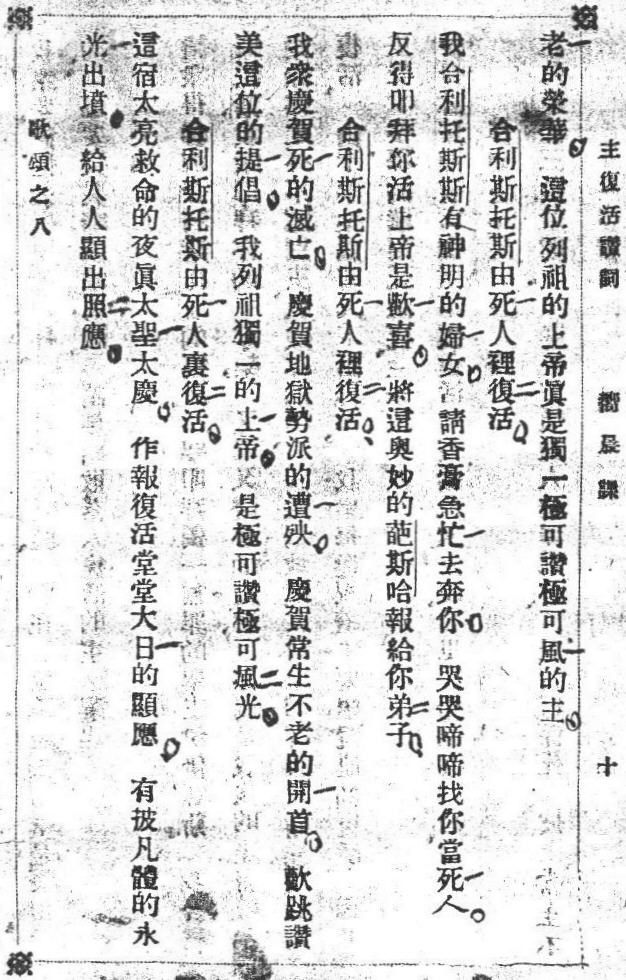 主復活讚詞 嚮晨課 十
老的榮華 這位列祖的上帝眞是獨一極可讚極可風的主
合利斯托斯由死人裡復活
我合利托斯斯有神明的婦女 請香膏急忙去奔你 哭哭啼啼找你當死人
反得叩拜你活上帝是歡喜 將這奧妙的葩斯哈報給你弟子
合利斯托斯由死人裡復活
我衆慶賀死的滅亡 慶賀地獄勢派的遭殃 慶賀常生不老的開首 歡跳讚
美這位的提倡 我列祖獨一的上帝 是極可讚極可風光
合利斯托斯由死人裏復活
這宿太亮救命的夜眞太聖太慶 作報復活堂堂大日的顯應 有披凡體的永
光出墳 給人人顯出照應
歌頌之八